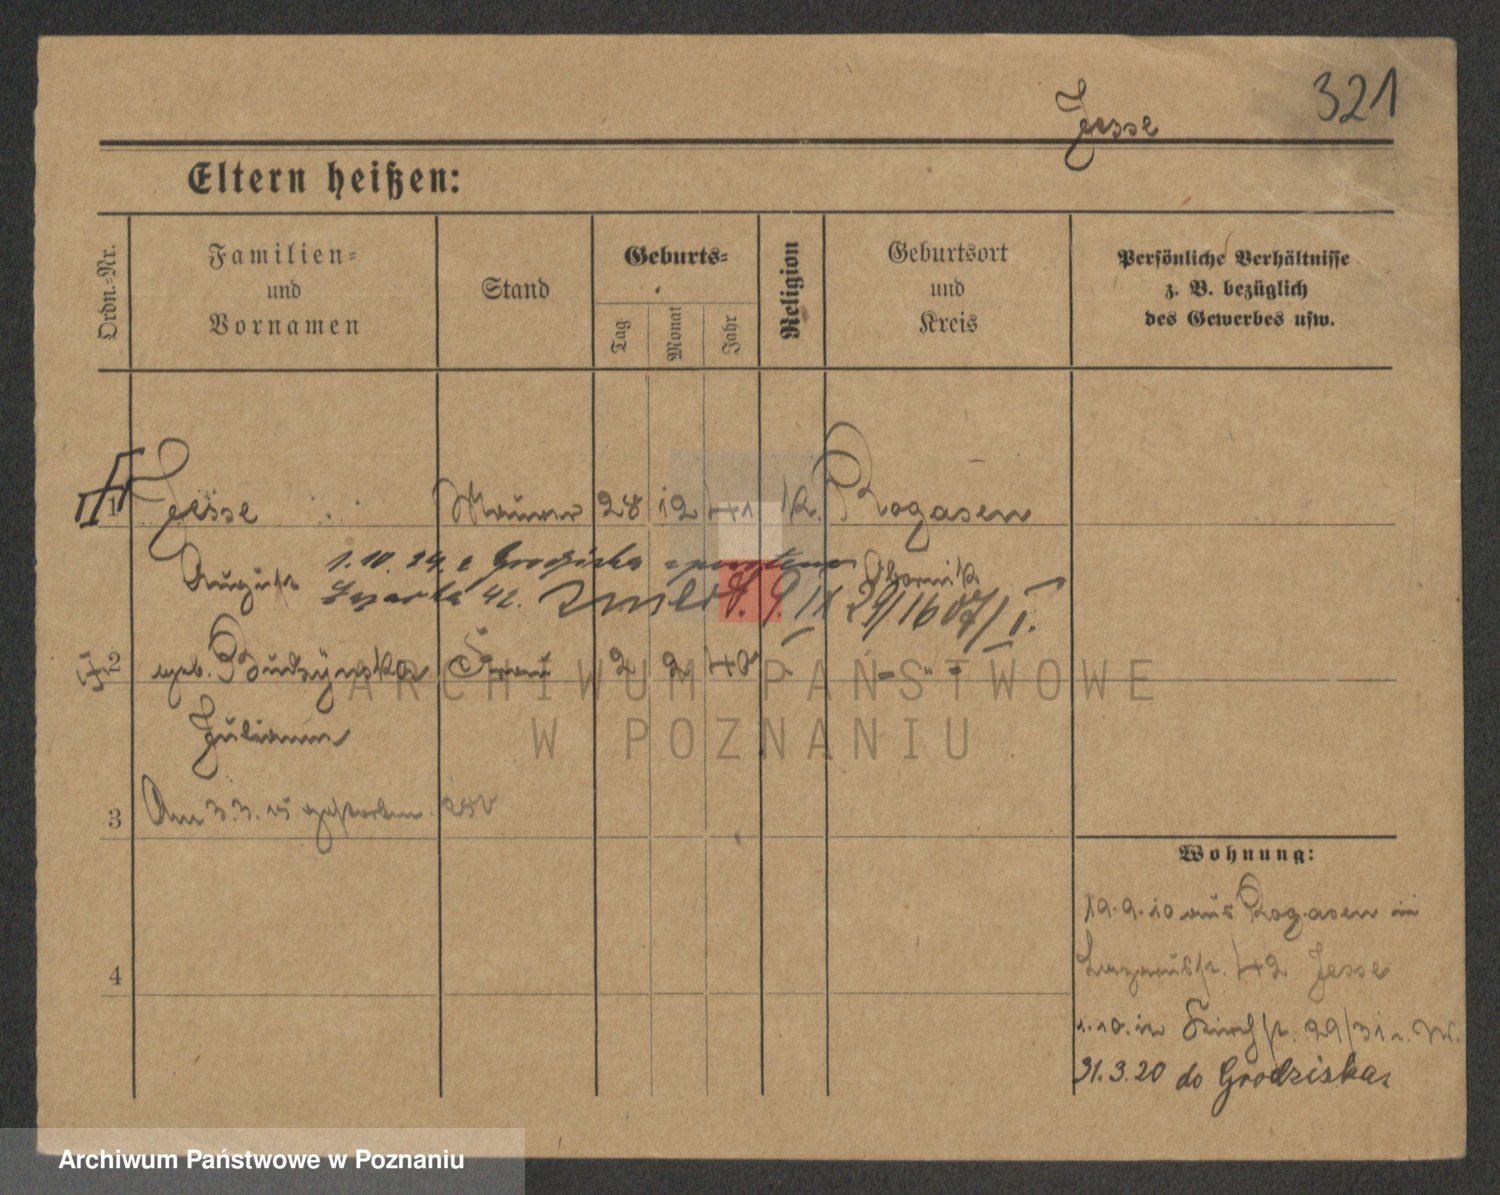 321
Jesse
Eltern heißen:
Ordn.-Nr.
Familien-
und
Vornamen
Stand
Geburts-
Tag
Monat
Jahr
Religion
Geburtsort
und
Kreis
Persönliche Verhältnisse
z. B. bezüglich
des Gewerbes usw.
1 Jesse Maurer 28 12 41 k. Rogasen
August Obornik
1.10.24 z Grodziska
42. 9. IX 29/1607/I.
2 geb. Budzynska Frau 2 2 40 - " -
Julianna
3 Am 3.3.15 gestorben.
4
Wohnung:
19.9.10 aus Rogasen in
Lazarusstr. 42 Jesse
1.10. in Kirchstr. 29/31
31.3.20 do Grodziska
ARCHIWUM PAŃSTWOWE
W POZNANIU
Archiwum Państwowe w Poznaniu